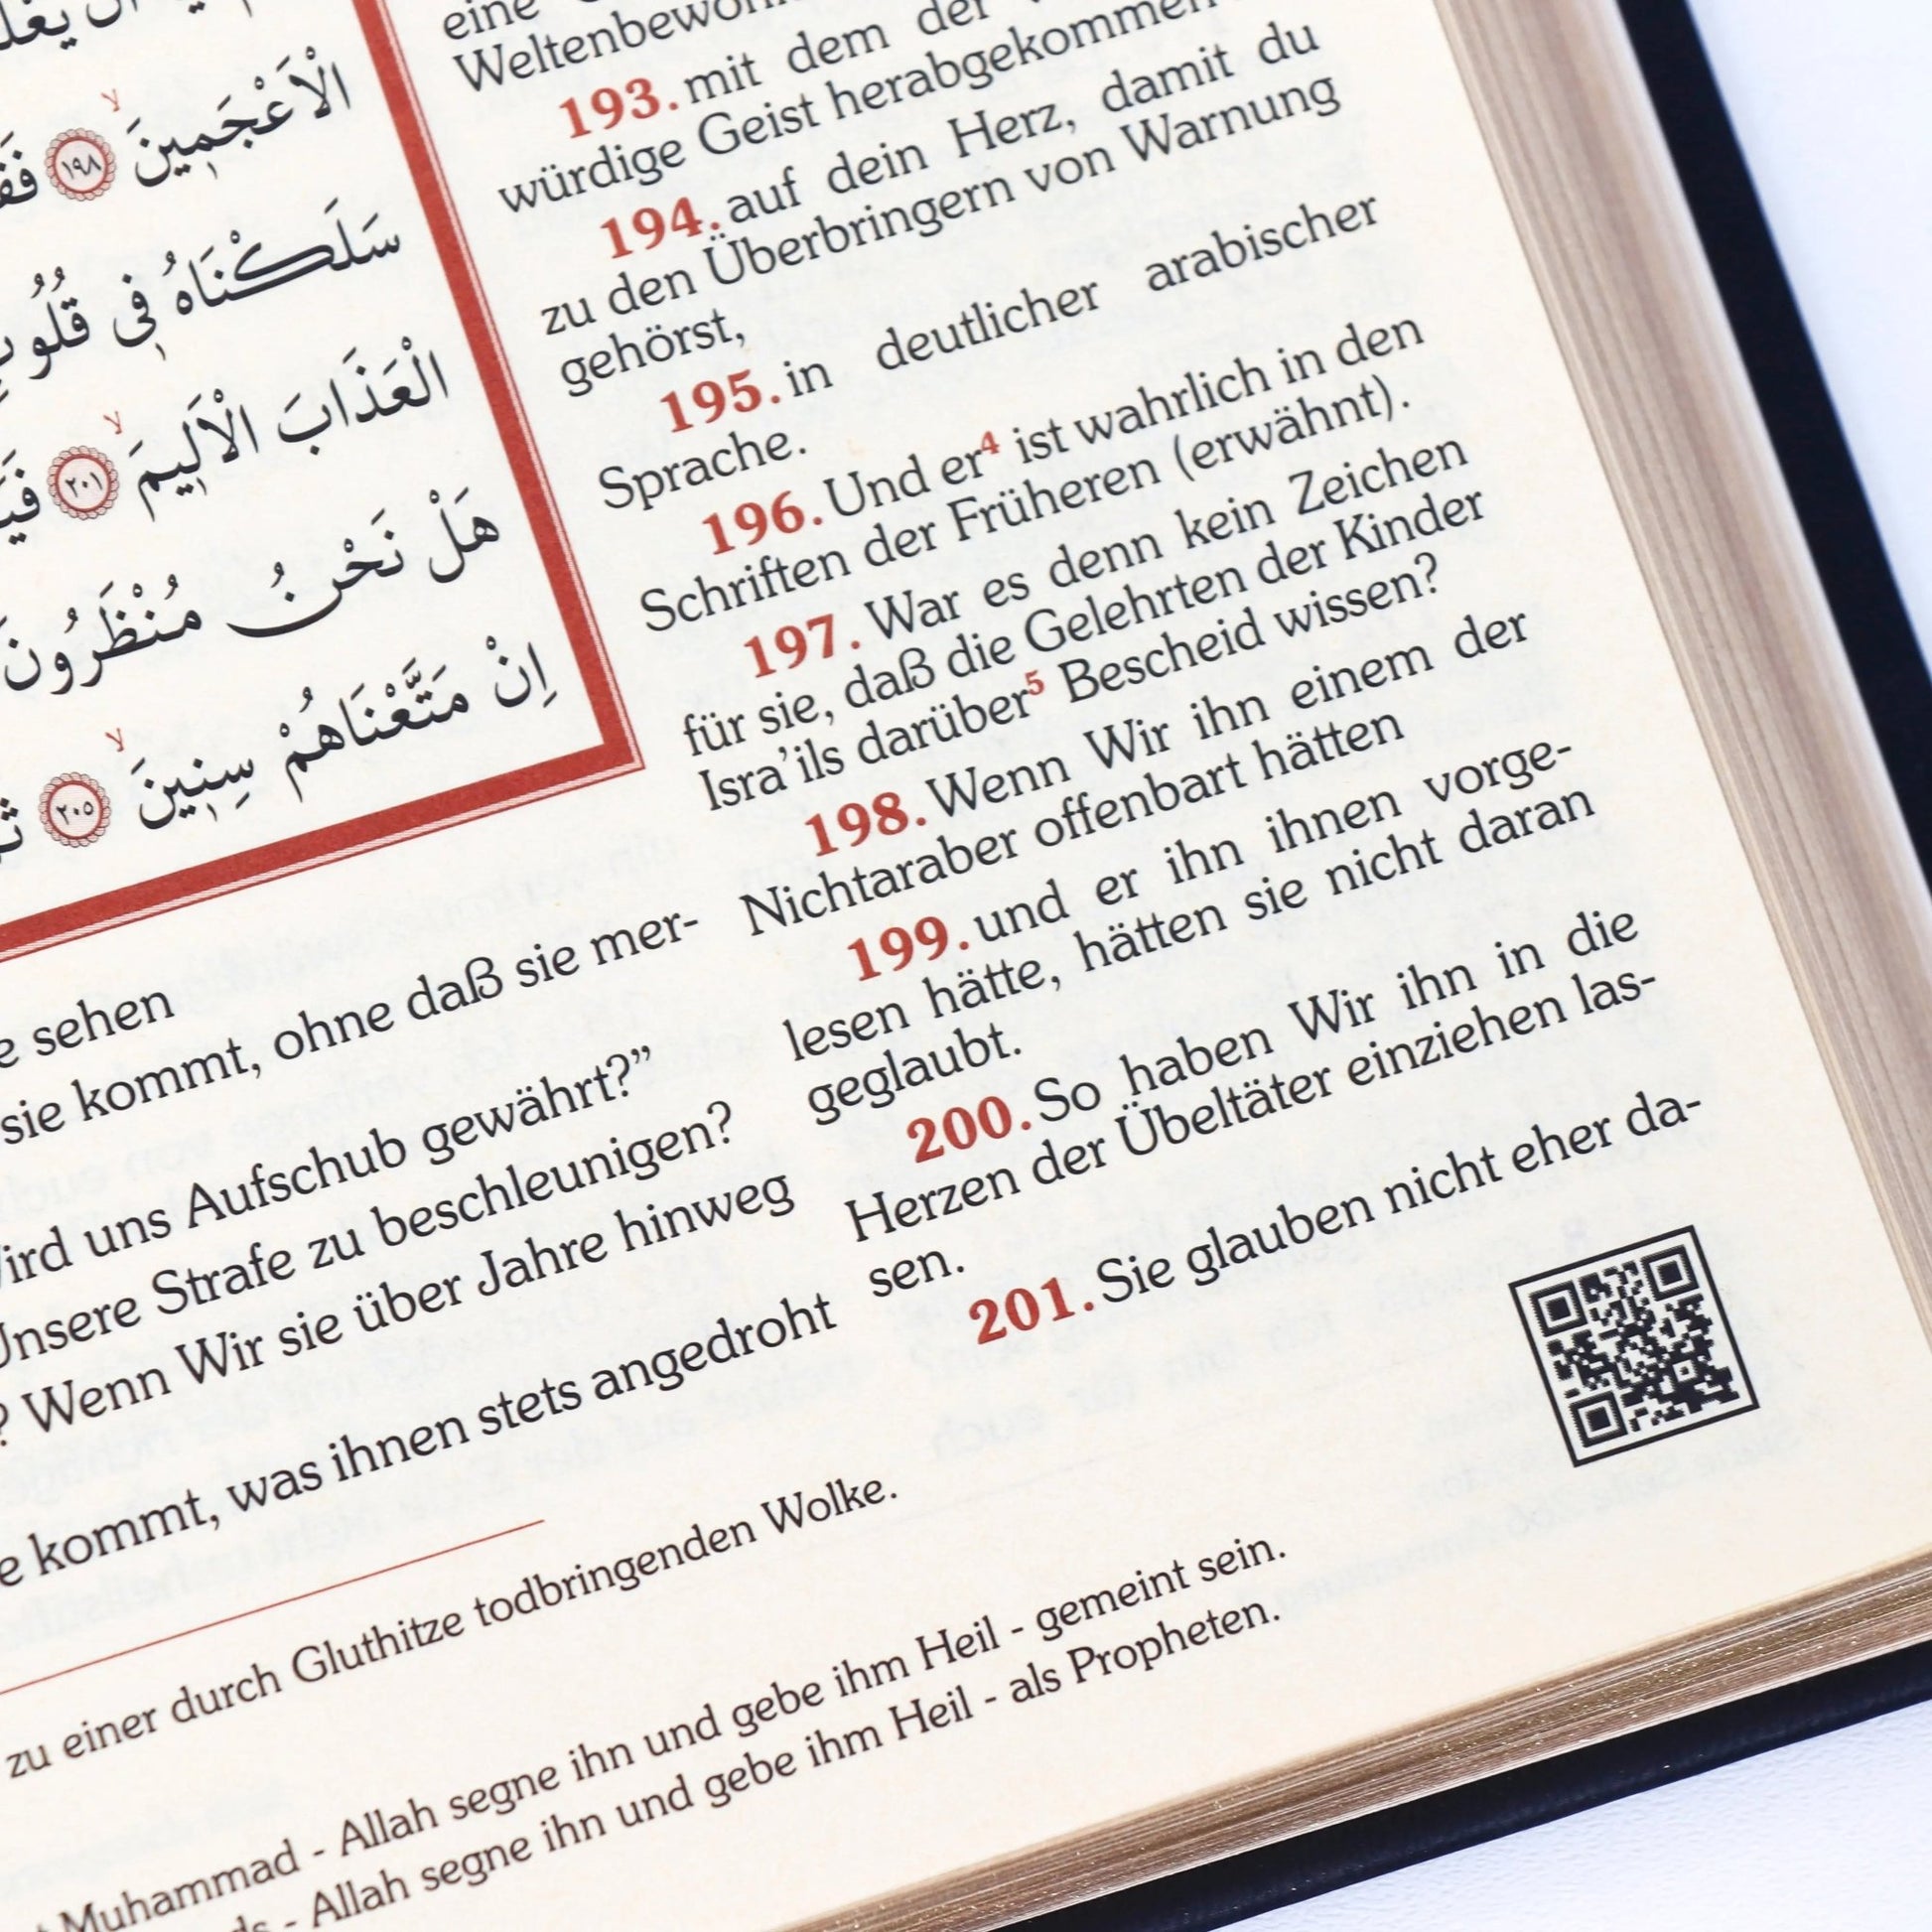 الْاَعْجَمٖينَۙ ١٩٨
سَلَكْنَاهُ فٖى
الْعَذَابَ الْاَلٖيمَۙ ٢٠١
هَلْ نَحْنُ مُنْظَرُونَ
اِنْ مَتَّعْنَاهُمْ سِنٖينَۙ ٢٠٥
eine
193. mit dem der
würdige Geist herabgekommen
194. auf dein Herz, damit du
zu den Überbringern von Warnung
gehörst,
195. in deutlicher arabischer
Sprache.
196. Und er⁴ ist wahrlich in den
Schriften der Früheren (erwähnt).
197. War es denn kein Zeichen
für sie, daß die Gelehrten der Kinder
Isra'ils darüber⁵ Bescheid wissen?
198. Wenn Wir ihn einem der
Nichtaraber offenbart hätten
199. und er ihn ihnen vorge-
lesen hätte, hätten sie nicht daran
geglaubt.
200. So haben Wir ihn in die
Herzen der Übeltäter einziehen las-
sen.
201. Sie glauben nicht eher da-
sehen
sie kommt, ohne daß sie mer-
uns Aufschub gewährt?”
Unsere Strafe zu beschleunigen?
? Wenn Wir sie über Jahre hinweg
kommt, was ihnen stets angedroht
zu einer durch Gluthitze todbringenden Wolke.
Muhammad - Allah segne ihn und gebe ihm Heil - gemeint sein.
- Allah segne ihn und gebe ihm Heil - als Propheten.